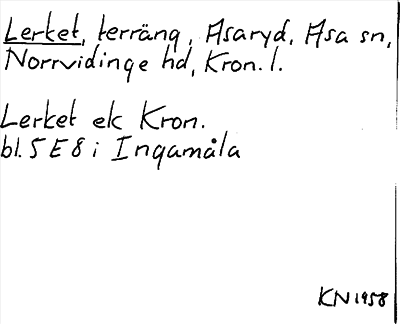 Lerket, terräng, Asaryd, Asa sn,
Norrvidinge hd, Kron. l.
Lerket ek Kron.
bl. 5 E 8 i Ingamåla
KN 1958